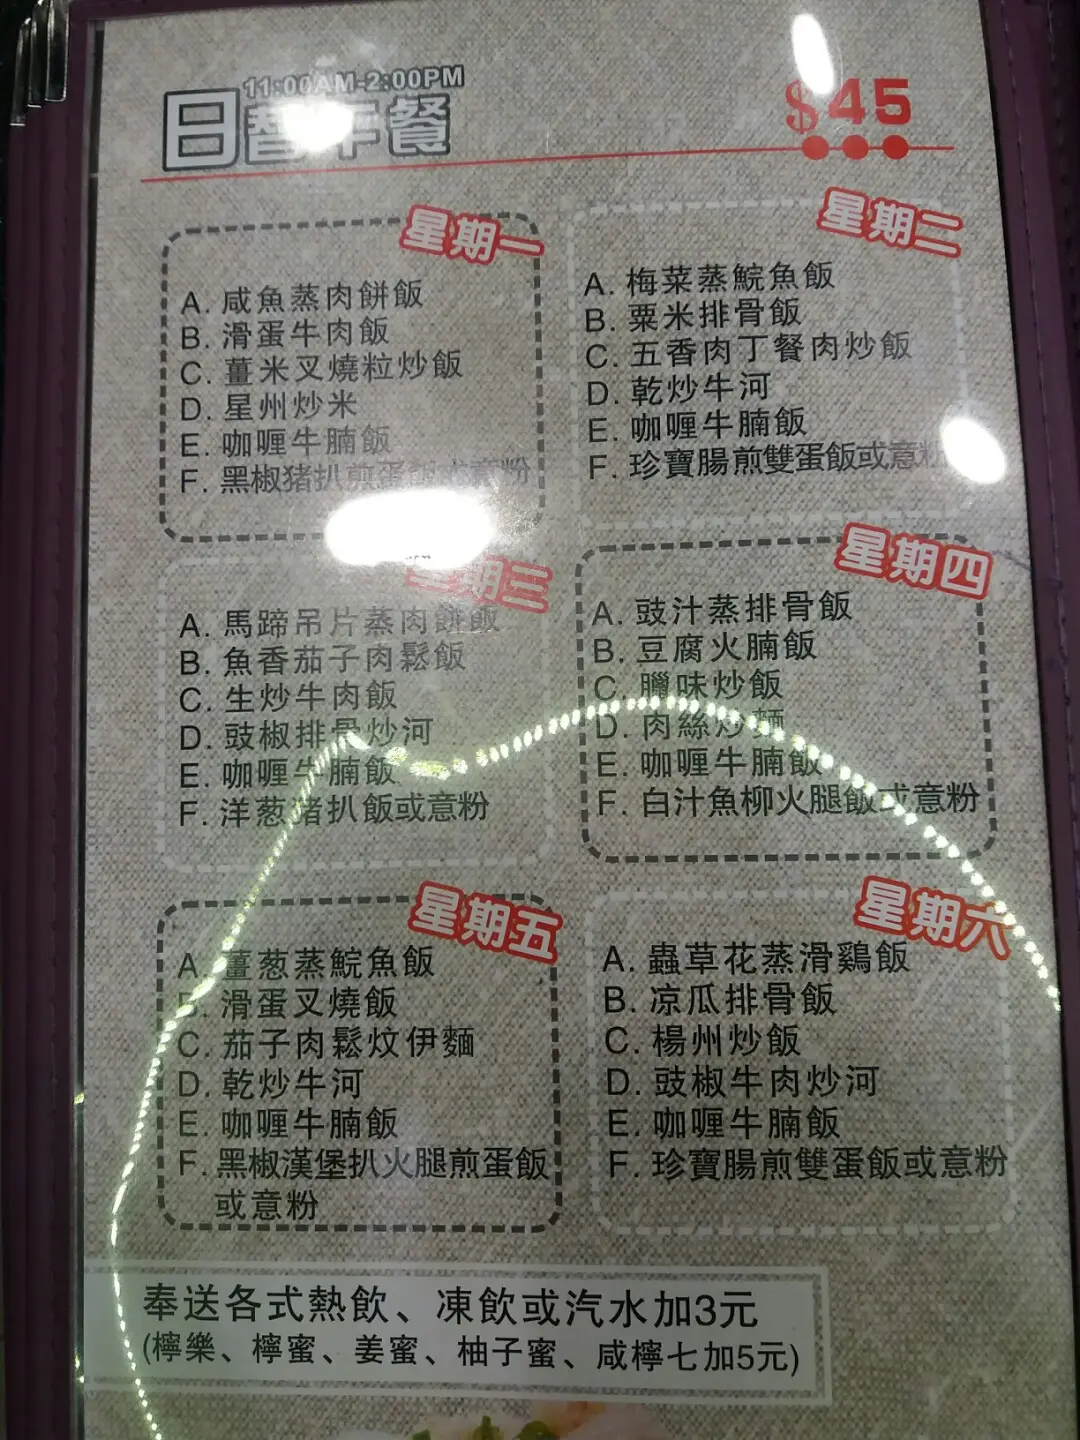 11:00AM-2:00PM
日替午餐
$45
星期一
A. 咸魚蒸肉餅飯
B. 滑蛋牛肉飯
C. 薑米叉燒粒炒飯
D. 星州炒米
E. 咖喱牛腩飯
F. 黑椒猪扒煎蛋飯或意粉
星期二
A. 梅菜蒸鯇魚飯
B. 粟米排骨飯
C. 五香肉丁餐肉炒飯
D. 乾炒牛河
E. 咖喱牛腩飯
F. 珍寶腸煎雙蛋飯或意粉
星期三
A. 馬蹄吊片蒸肉餅飯
B. 魚香茄子肉鬆飯
C. 生炒牛肉飯
D. 豉椒排骨炒河
E. 咖喱牛腩飯
F. 洋葱猪扒飯或意粉
星期四
A. 豉汁蒸排骨飯
B. 豆腐火腩飯
C. 臘味炒飯
D. 肉絲炒麵
E. 咖喱牛腩飯
F. 白汁魚柳火腿飯或意粉
星期五
A. 薑葱蒸鯇魚飯
B. 滑蛋叉燒飯
C. 茄子肉鬆炆伊麵
D. 乾炒牛河
E. 咖喱牛腩飯
F. 黑椒漢堡扒火腿煎蛋飯
或意粉
星期六
A. 蟲草花蒸滑鷄飯
B. 凉瓜排骨飯
C. 楊州炒飯
D. 豉椒牛肉炒河
E. 咖喱牛腩飯
F. 珍寶腸煎雙蛋飯或意粉
奉送各式熱飲、凍飲或汽水加3元
(檸樂、檸蜜、姜蜜、柚子蜜、咸檸七加5元)